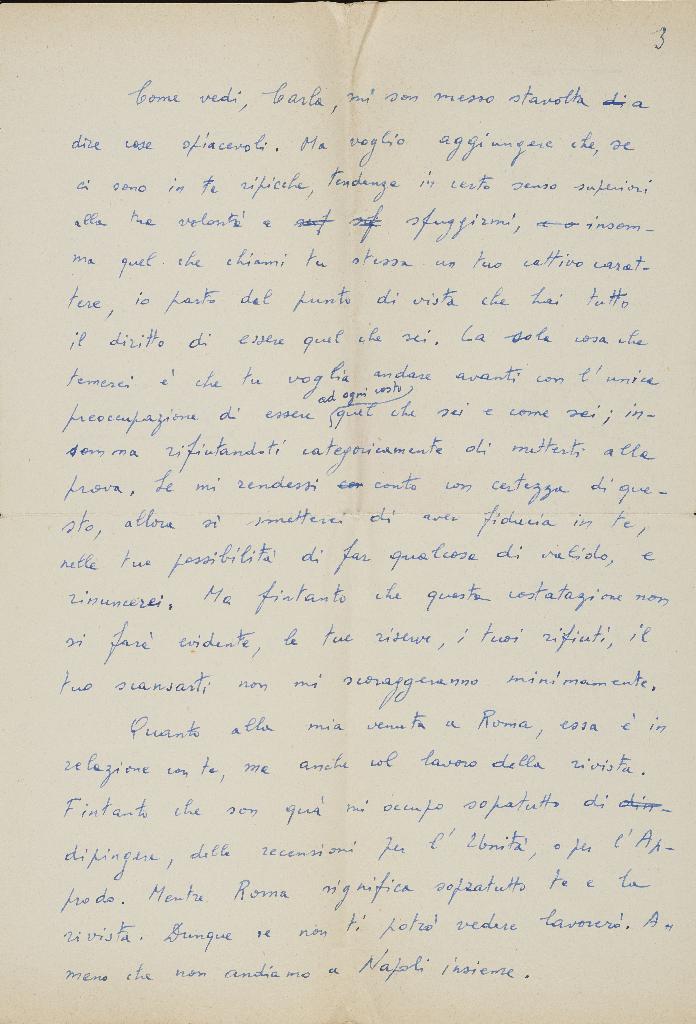 3
Come vedi, Carla, mi son messo stavolta di a
dire cose spiacevoli. Ma voglio aggiungere che, se
ci sono in te ripicche, tendenze in certo senso superiori
alla tua volontà a sof sf sfuggirmi, e o insom-
ma quel che chiami tu stessa un tuo cattivo carat-
tere, io parto dal punto di vista che hai tutto
il diritto di essere quel che sei. La sola cosa che
temerei è che tu voglia andare avanti con l'unica
ad ogni costo
preoccupazione di essere quel che sei e come sei; in-
somma rifiutandoti categoricamente di metterti alla
prova. Se mi rendessi con conto con certezza di que-
sto, allora sì smetterei di aver fiducia in te,
nelle tue possibilità di far qualcosa di valido, e
rinuncerei. Ma fintanto che questa costatazione non
si farà evidente, le tue riserve, i tuoi rifiuti, il
tuo scansarti non mi scoraggeranno minimamente.
Quanto alla mia venuta a Roma, essa è in
relazione con te, ma anche col lavoro della rivista.
Fintanto che son quà mi occupo sopatutto di din-
dipingere, delle recensioni per l'Unità, o per l'Ap-
prodo. Mentre Roma significa sopratutto te e la
rivista. Dunque se non ti potrò vedere lavorerò. A-
meno che non andiamo a Napoli insieme.